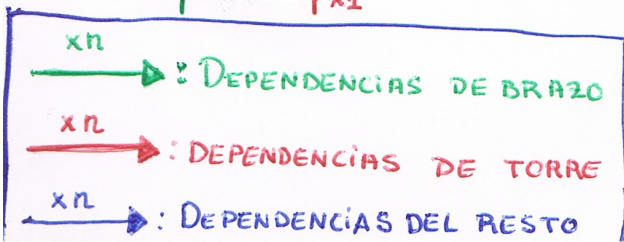 x1
xn
: DEPENDENCiAS DE BRAZO
xn
: DEPENDENCiAS DE TORRE
xn
: DEPENDENCiAS DEL RESTO